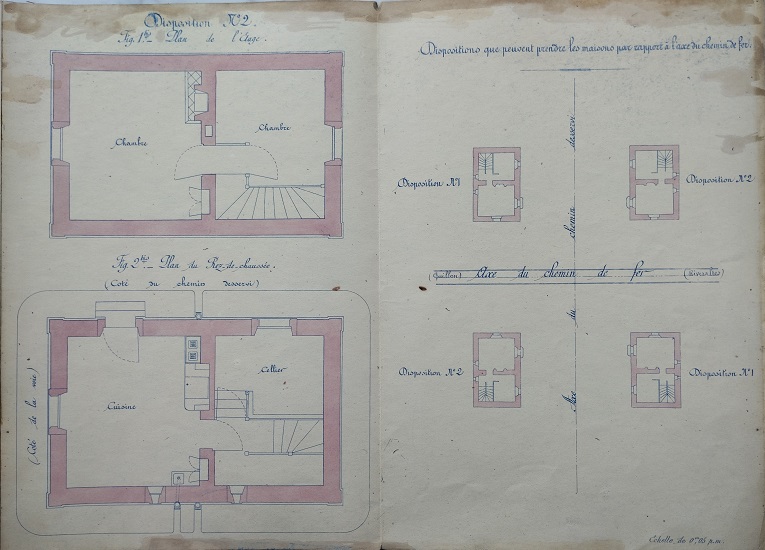 Disposition N°2.
Fig. 1re Plan de l'étage.
Chambre
Chambre
Fig. 2me Plan du Rez-de-chaussée.
(Coté du chemin desservi)
(Coté de la voie)
Cuisine
Cellier
Dispositions que peuvent prendre les maisons par rapport à l'axe du chemin de fer.
Axe du chemin desservi
Disposition N°1
Disposition N°2
Axe du chemin de fer
Disposition N°2
Disposition N°1
Echelle de 0m,05 p.m.